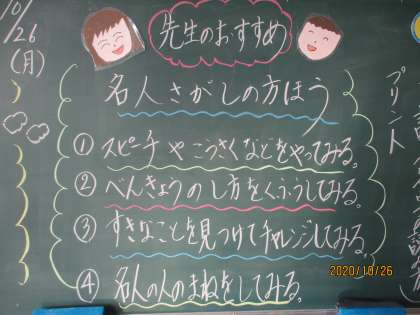 10/26
(月)
先生のおすすめ
名人さがしの方ほう
① スピーチやこうさくなどをやってみる。
② べんきょうのし方をくふうしてみる。
③ すきなことを見つけてチャレンジしてみる。
④ 名人の人のまねをしてみる。
プリント
2020/10/26